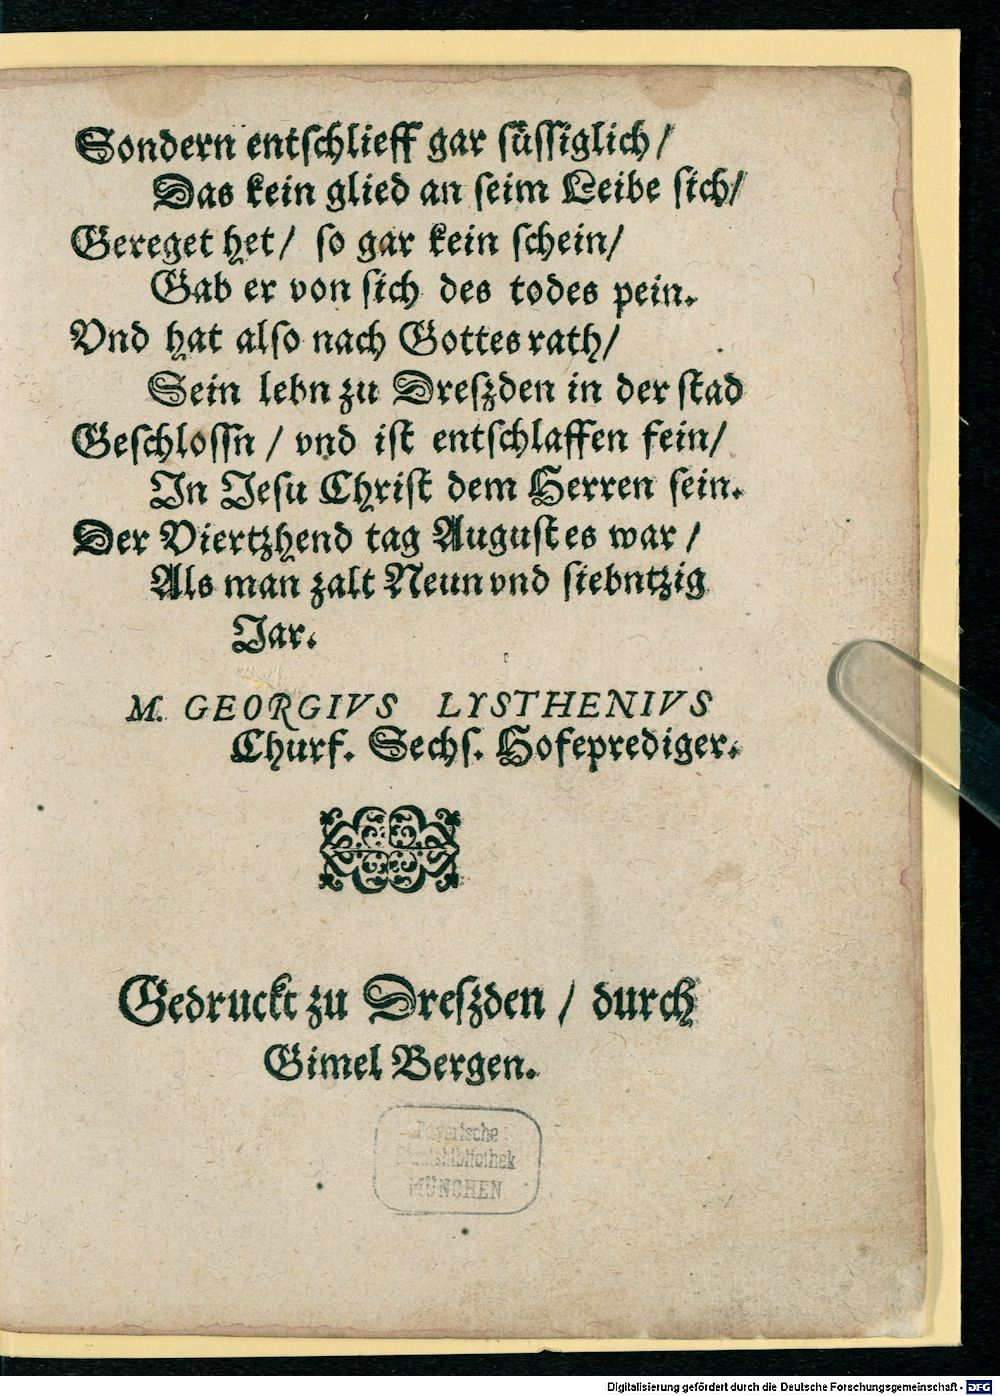 Sondern entſchlieff gar ſüſſiglich /
Das kein glied an ſeim Leibe ſich /
Gereget het / ſo gar kein ſchein /
Gab er von ſich des todes pein.
Vnd hat alſo nach Gottes rath /
Sein lebn zu Dreſzden in der ſtad
Geſchloſſn / vnd iſt entſchlaffen fein /
In Jeſu Chriſt dem Herren ſein.
Der Viertzhend tag Auguſt es war /
Als man zalt Neun vnd ſiebntzig
Jar.
M. GEORGIVS LYSTHENIVS
Churf. Sechſ. Hofeprediger.
Gedruckt zu Dreſzden / durch
Gimel Bergen.
Bayerische
Staatsbibliothek
MÜNCHEN
Digitalisierung gefördert durch die Deutsche Forschungsgemeinschaft - DFG